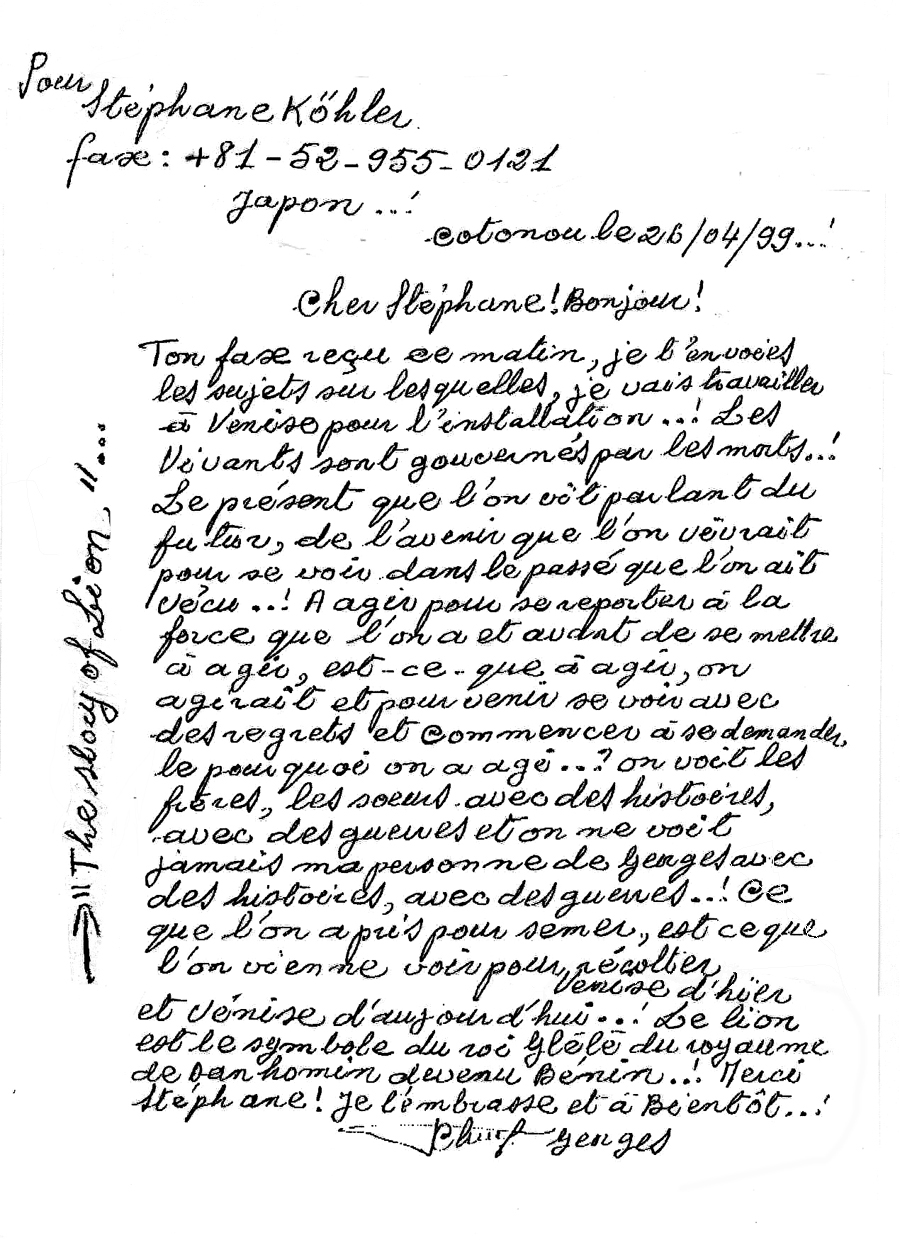 Pour
Stéphane Köhler.
faxe: +81-52-955-0121
Japon ..!
Cotonou le 26/04/99...!
Cher Stéphane! Bonjour!
Ton faxe reçu ce matin, je t'envoies
les sujets sur lesquelles, je vais travailler
à Venise pour l'installation ..! Les
Vivants sont gouvernés par les morts..!
Le présent que l'on vît parlant du
futur, de l'avenir que l'on vëvrait
pour se voir dans le passé que l'on ait
vécu ..! A agir pour se reporter à la
force que l'on a et avant de se mettre
à agir, est-ce-que à agir, on
agiraît et pour venir se voir avec
des regrets et commencer à se demander,
le pourquoi on a agi ..? on voit les
frères, les soeurs avec des histoires,
avec des guerres et on ne voit
jamais ma personne de Georges avec
des histoires, avec des guerres..! Ce
que l'on a pris pour semer, est ce que
l'on vienne voir pour récolter,
Venise d'hïer
et Vénise d'aujourd'hui...! Le lion
est le symbole du roi Glélé du royaume
de Danhomin devenu Bénin..! Merci
Stéphane! Je t'embrasse et à Bientôt...!
Georges
"The story of Lion" ...